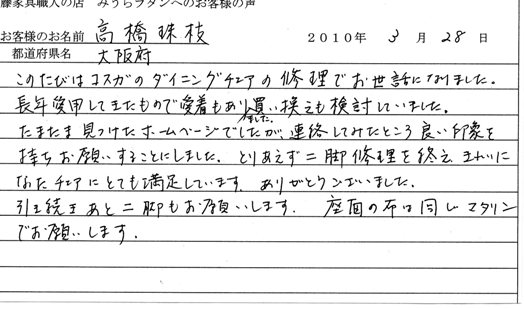 藤家具職人の店 みうらラタンへのお客様の声
お客様のお名前 高橋珠枝 2010年 3月 28日
都道府県名 大阪府
このたびはコスガのダイニングチェアの修理でお世話になりました。
長年愛用してきたもので愛着もあり買い換えも検討していました。
ましたが
たまたま見つけたホームページでしたが、連絡してみたところ良い印象を
持ちお願いすることにしました。とりあえず二脚修理を終え、きれいに
なったチェアにとても満足しています。ありがとうございました。
引き続きあと二脚もお願いします。 座面の布は同じマタリン
でお願いします。